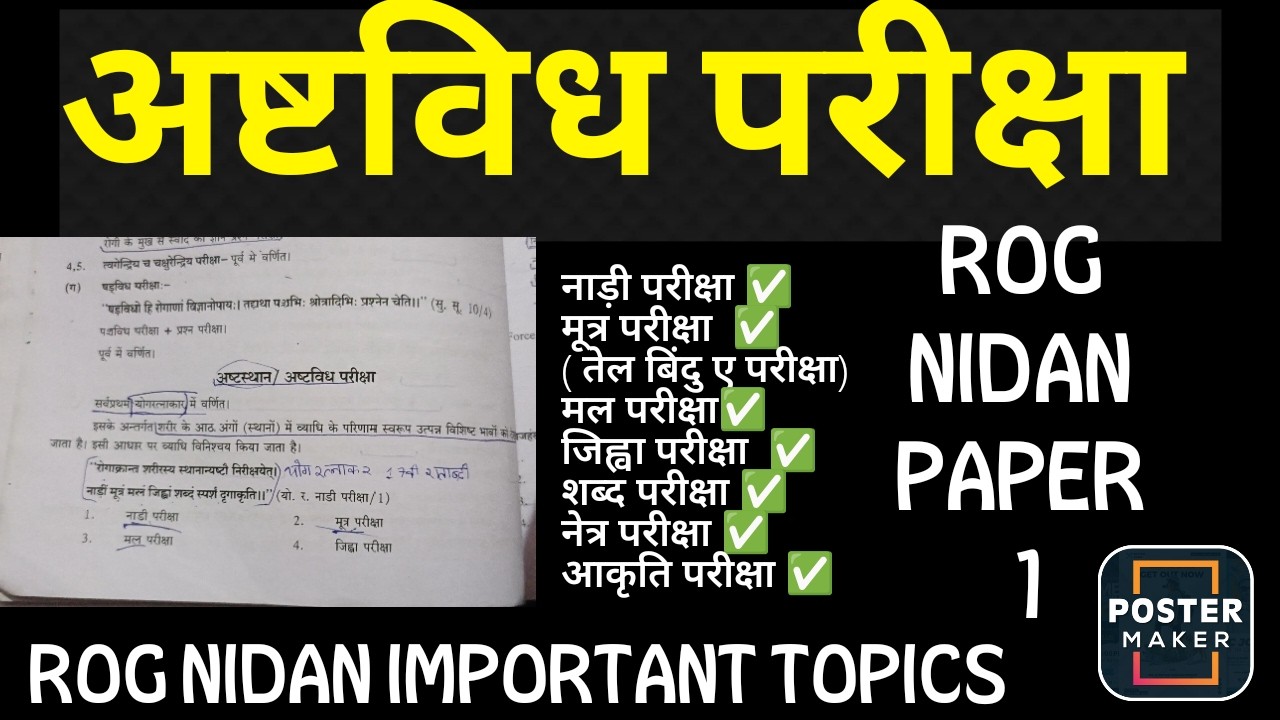 अष्टविध परीक्षा
रोगी के मुख से स्वाद का ज्ञान प्रश्न
4,5. त्वगेन्द्रिय च चक्षुरेन्द्रिय परीक्षा– पूर्व में वर्णित।
(ग) षड्विध परीक्षा:–
"षड्विधो हि रोगाणां विज्ञानोपायः। तद्यथा पञ्चभिः श्रोत्रादिभिः प्रश्नेन चेति।।" (सु. सू. 10/4)
पञ्चविध परीक्षा + प्रश्न परीक्षा।
पूर्व में वर्णित।
अष्टस्थान/ अष्टविध परीक्षा
सर्वप्रथम योगरत्नाकार में वर्णित।
इसके अन्तर्गत शरीर के आठ अंगों (स्थानों) में व्याधि के परिणाम स्वरूप उत्पन्न विशिष्ट भावों को
जाता है। इसी आधार पर व्याधि विनिश्चय किया जाता है।
"रोगाक्रान्त शरीरस्य स्थानान्यष्टौ निरीक्षयेत्। योग रत्नाकर 17वी शताब्दी
नाड़ीं मूत्रं मलं जिह्वां शब्दं स्पर्श दृगाकृति।।" (यो. र. नाडी परीक्षा/1)
1. नाडी परीक्षा 2. मूत्र परीक्षा
3. मल परीक्षा 4. जिह्वा परीक्षा
नाड़ी परीक्षा ✅
मूत्र परीक्षा ✅
( तेल बिंदु ए परीक्षा)
मल परीक्षा✅
जिह्वा परीक्षा ✅
शब्द परीक्षा ✅
नेत्र परीक्षा ✅
आकृति परीक्षा ✅
ROG
NIDAN
PAPER
1
POSTER
MAKER
ROG NIDAN IMPORTANT TOPICS